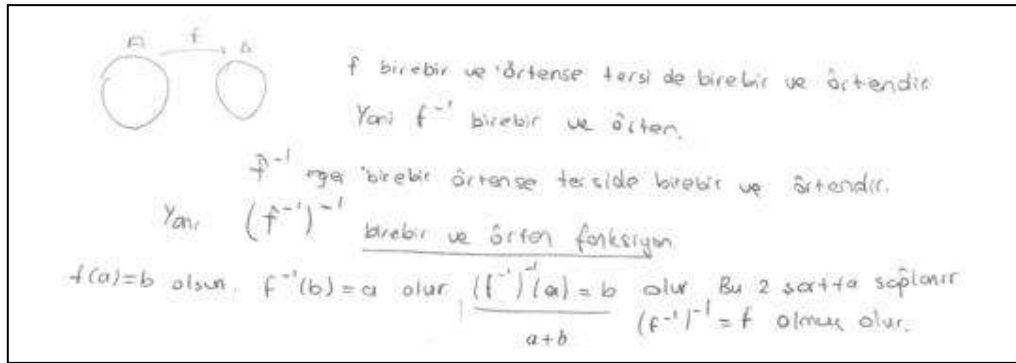 A f B
f birebir ve örtense tersi de birebir ve örtendir
Yani f⁻¹ birebir ve örten.
f⁻¹ eğer birebir örtense terside birebir ve örtendir.
Yani (f⁻¹)⁻¹ birebir ve örten fonksiyon
f(a)=b olsun. f⁻¹(b)=a olur (f⁻¹)⁻¹(a)=b olur Bu 2 şartta sağlanır
a+b (f⁻¹)⁻¹=f olmuş olur.